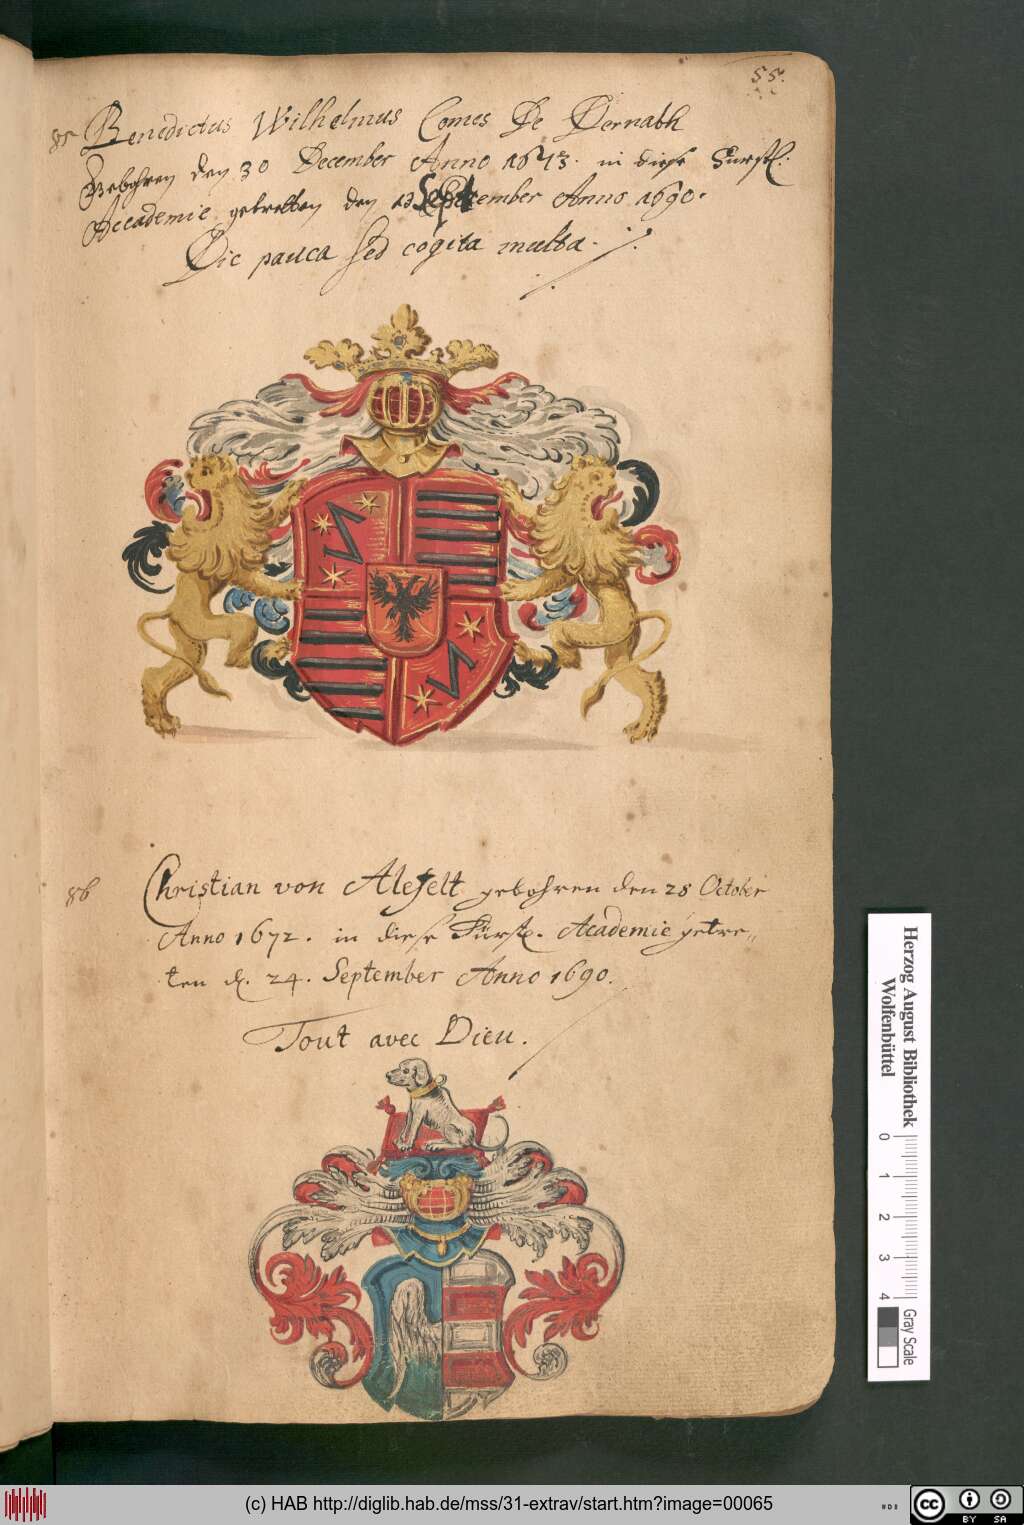 55.
85 Benedictus Wilhelmus Comes De Dernath
Gebohren den 30 December Anno 1673. in diese Fürstl.
Accademie getretten den 13 September Anno 1690.
Dic pauca sed cogita multa.
86 Christian von Alefelt gebohren den 28 October
Anno 1672. in diese Fürstl. Academie getre„
ten d. 24. September Anno 1690.
Tout avec Dieu.
Herzog August Bibliothek
Wolfenbüttel
0 1 2 3 4
Gray Scale
(c) HAB http://diglib.hab.de/mss/31-extrav/start.htm?image=00065
cc BY SA